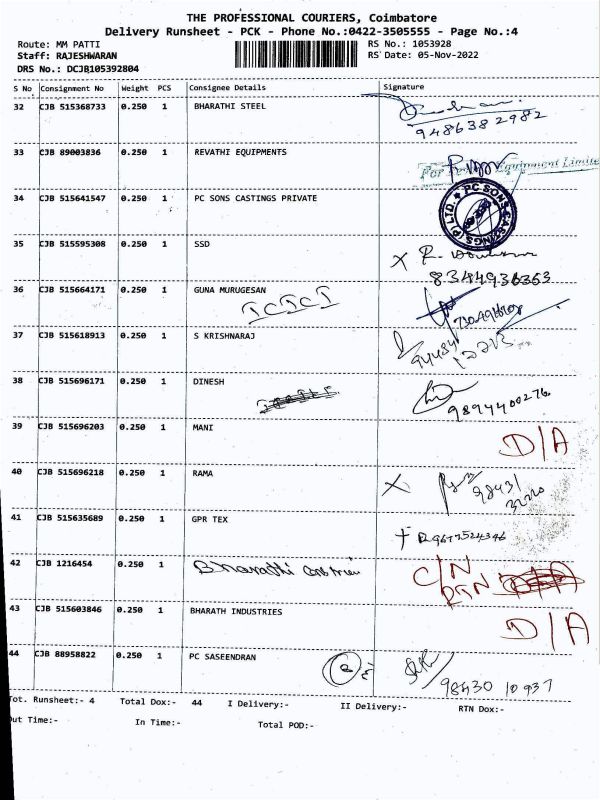 THE PROFESSIONAL COURIERS, Coimbatore
Delivery Runsheet - PCK - Phone No.:0422-3505555 - Page No.:4
Route: MM PATTI
RS No.: 1053928
Staff: RAJESHWARAN
RS Date: 05-Nov-2022
DRS No.: DCJB105392804
S No Consignment No Weight PCS Consignee Details Signature
32 CJB 515368733 0.250 1 BHARATHI STEEL
9486382982
33 CJB 89003836 0.250 1 REVATHI EQUIPMENTS
For Equipment Limite
34 CJB 515641547 0.250 1 PC SONS CASTINGS PRIVATE
PC SONS CASTINGS (P) LTD.
35 CJB 515595308 0.250 1 SSD
8344936353
36 CJB 515664171 0.250 1 GUNA MURUGESAN
ICICI
37 CJB 515618913 0.250 1 S KRISHNARAJ
38 CJB 515696171 0.250 1 DINESH
9894400276
39 CJB 515696203 0.250 1 MANI
D/A
40 CJB 515696218 0.250 1 RAMA
98431
41 CJB 515635689 0.250 1 GPR TEX
42 CJB 1216454 0.250 1 Bharathi
C/N
43 CJB 515603846 0.250 1 BHARATH INDUSTRIES
D/A
44 CJB 88958822 0.250 1 PC SASEENDRAN
98430 10937
Tot. Runsheet:- 4 Total Dox:- 44 I Delivery:- II Delivery:- RTN Dox:-
Out Time:- In Time:- Total POD:-